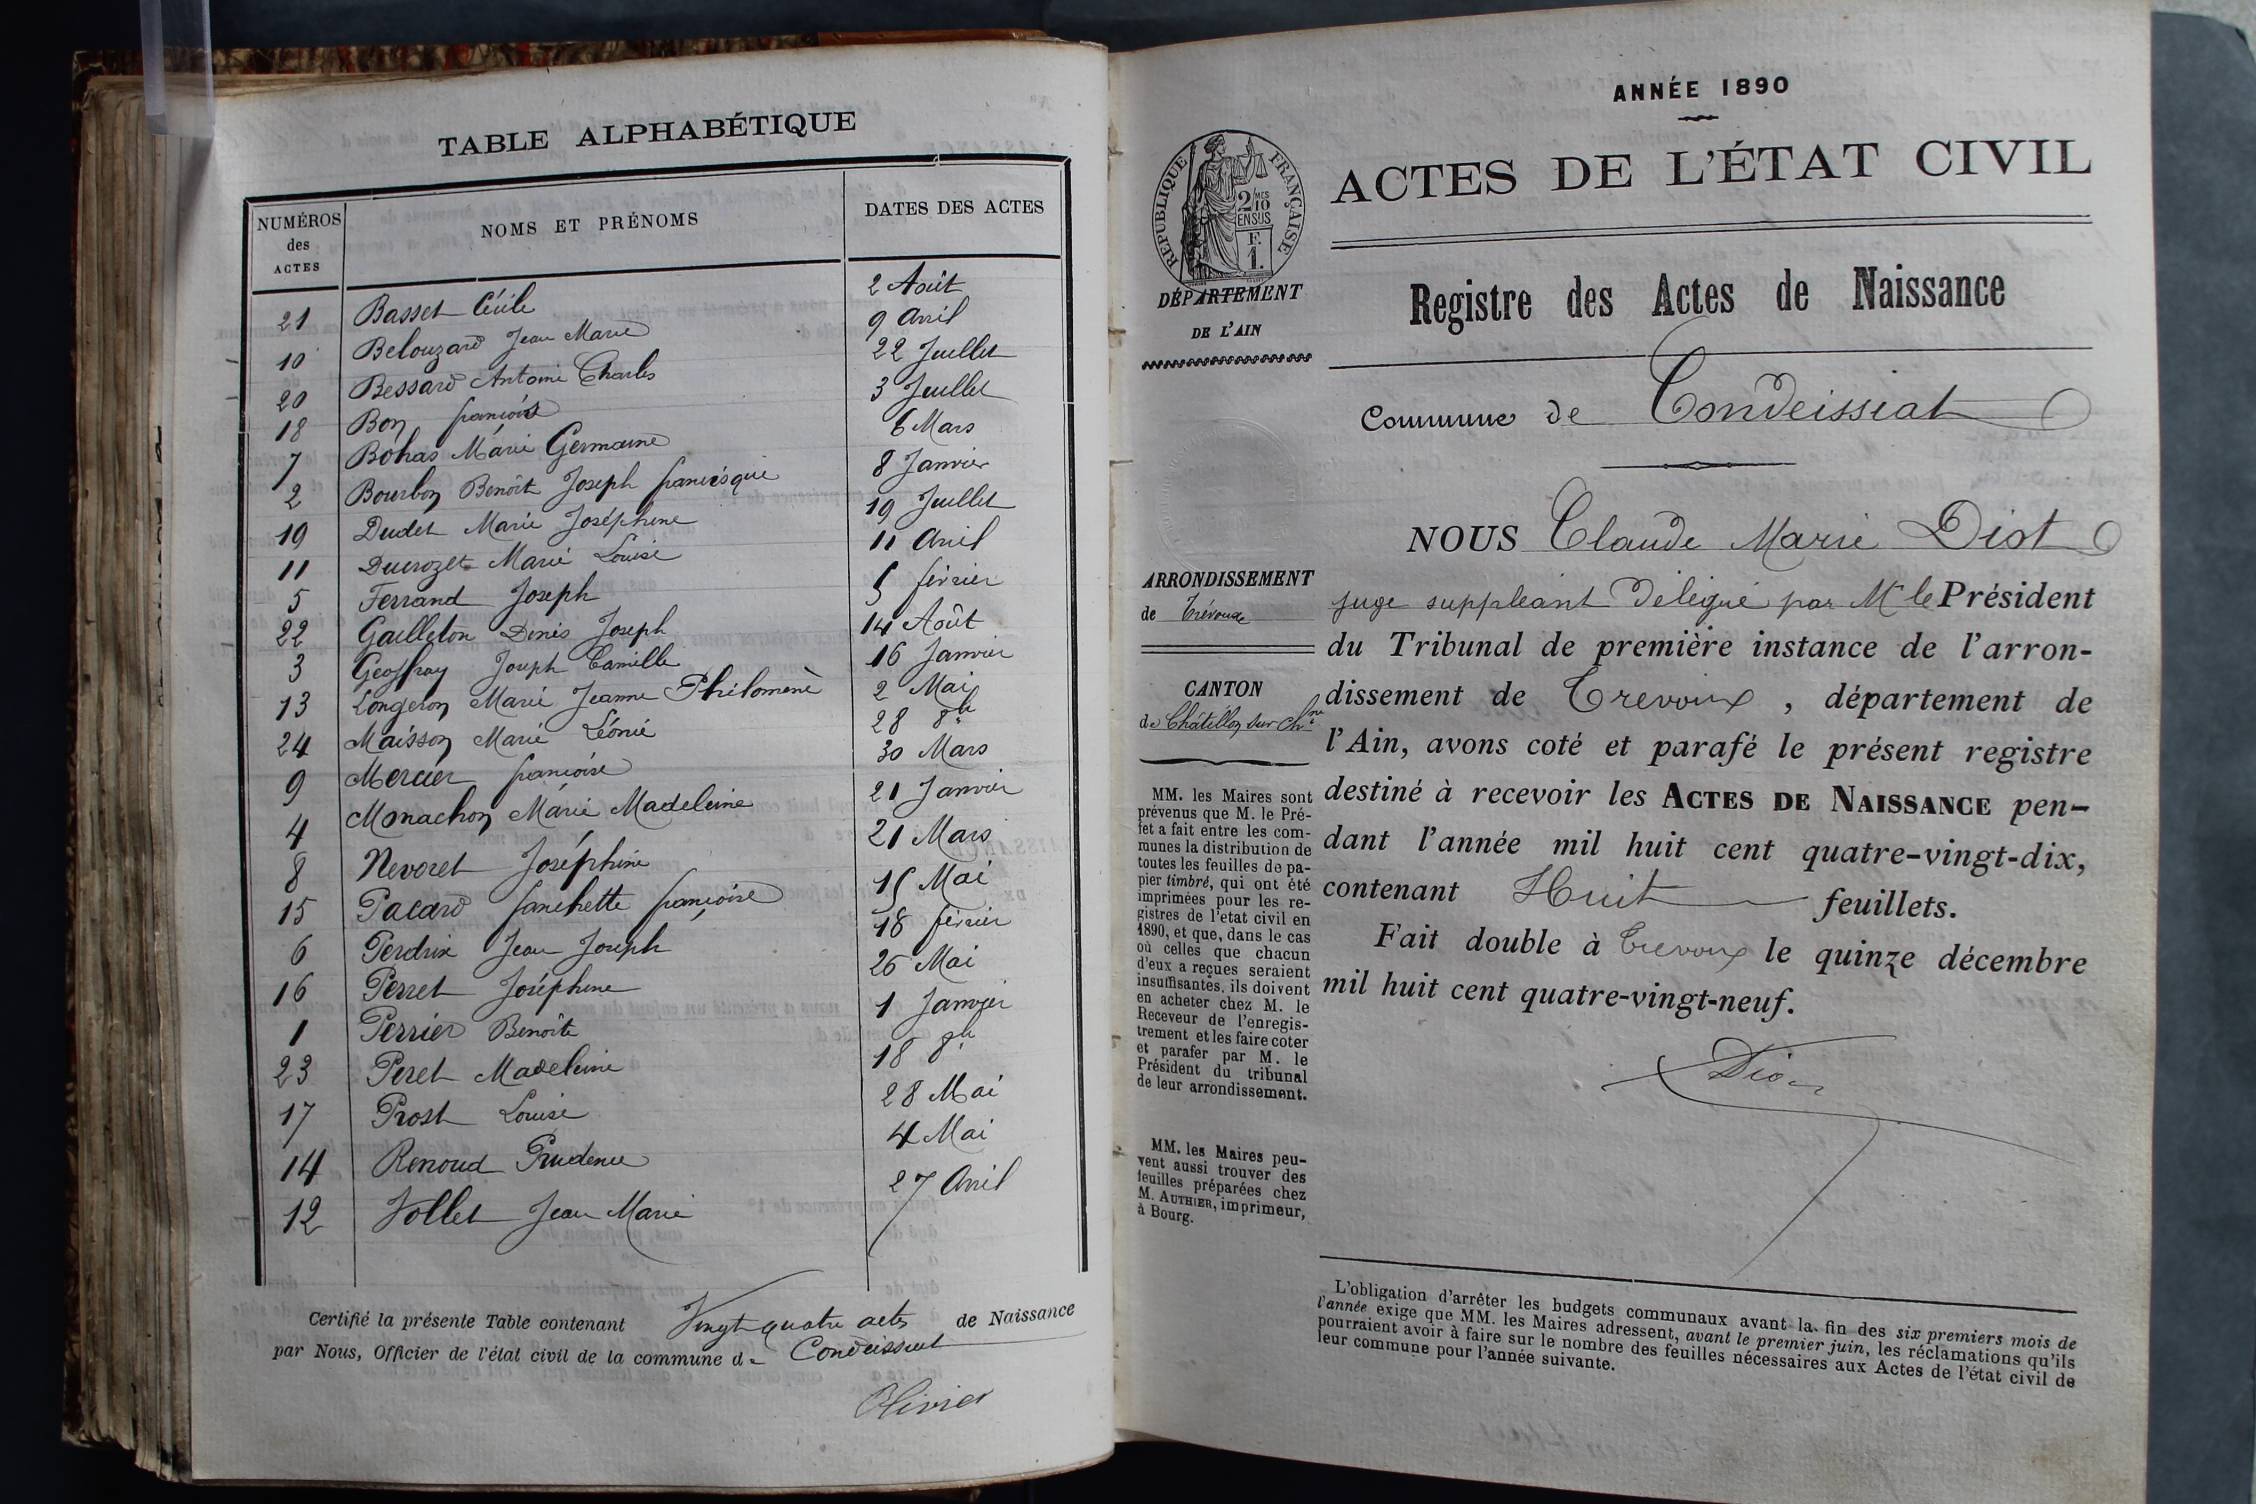 TABLE ALPHABÉTIQUE
NUMÉROS des ACTES NOMS ET PRÉNOMS DATES DES ACTES
21 Basset Cécile 2 Août
10 Belouzard Jean Marie 9 Avril
20 Bessard Antoine Charles 22 Juillet
18 Bon françois 3 Juillet
7 Bohas Marie Germaine 6 Mars
2 Bourbon Benoît Joseph francisque 8 Janvier
19 Dudet Marie Joséphine 19 Juillet
11 Ducrozet Marie Louise 11 Avril
5 Ferrand Joseph 5 février
22 Gailleton Denis Joseph 14 Août
3 Geoffray Joseph Camille 16 Janvier
13 Longeron Marie Jeanne Philomène 2 Mai
24 Maisson Marie Léonie 28 8bre
9 Mercier françoise 30 Mars
4 Monachon Marie Madeleine 21 Janvier
8 Nevoret Joséphine 21 Mars
15 Pacard fanchette françoise 15 Mai
6 Perdrix Jean Joseph 18 février
16 Perret Joséphine 26 Mai
1 Perrier Benoîte 1 Janvier
23 Peret Madeleine 18 8bre
17 Prost Louise 28 Mai
14 Renoud Prudence 4 Mai
12 Vollet Jean Marie 27 Avril
Certifié la présente Table contenant Vingt quatre actes de Naissance
par Nous, Officier de l'état civil de la commune de Condeissiat
Olivier
ANNÉE 1890
ACTES DE L'ÉTAT CIVIL
RÉPUBLIQUE FRANÇAISE
2/10MES
EN SUS
F.
1.
DÉPARTEMENT
DE L'AIN
Registre des Actes de Naissance
Commune de Condeissiat
ARRONDISSEMENT
de Trévoux
CANTON
de Châtillon sur Chne
MM. les Maires sont
prévenus que M. le Pré-
fet a fait entre les com-
munes la distribution de
toutes les feuilles de pa-
pier timbré, qui ont été
imprimées pour les re-
gistres de l'état civil en
1890, et que, dans le cas
où celles que chacun
d'eux a reçues seraient
insuffisantes, ils doivent
en acheter chez M. le
Receveur de l'enregis-
trement et les faire coter
et parafer par M. le
Président du tribunal
de leur arrondissement.
MM. les Maires peu-
vent aussi trouver des
feuilles préparées chez
M. AUTHIER, imprimeur,
à Bourg.
NOUS Claude Marie Diot
juge suppléant délégué par Mr le Président
du Tribunal de première instance de l'arron-
dissement de Trevoux, département de
l'Ain, avons coté et parafé le présent registre
destiné à recevoir les ACTES DE NAISSANCE pen-
dant l'année mil huit cent quatre-vingt-dix,
contenant Huit feuillets.
Fait double à Trevoux le quinze décembre
mil huit cent quatre-vingt-neuf.
Diot
L'obligation d'arrêter les budgets communaux avant la fin des six premiers mois de
l'année exige que MM. les Maires adressent, avant le premier juin, les réclamations qu'ils
pourraient avoir à faire sur le nombre des feuilles nécessaires aux Actes de l'état civil de
leur commune pour l'année suivante.